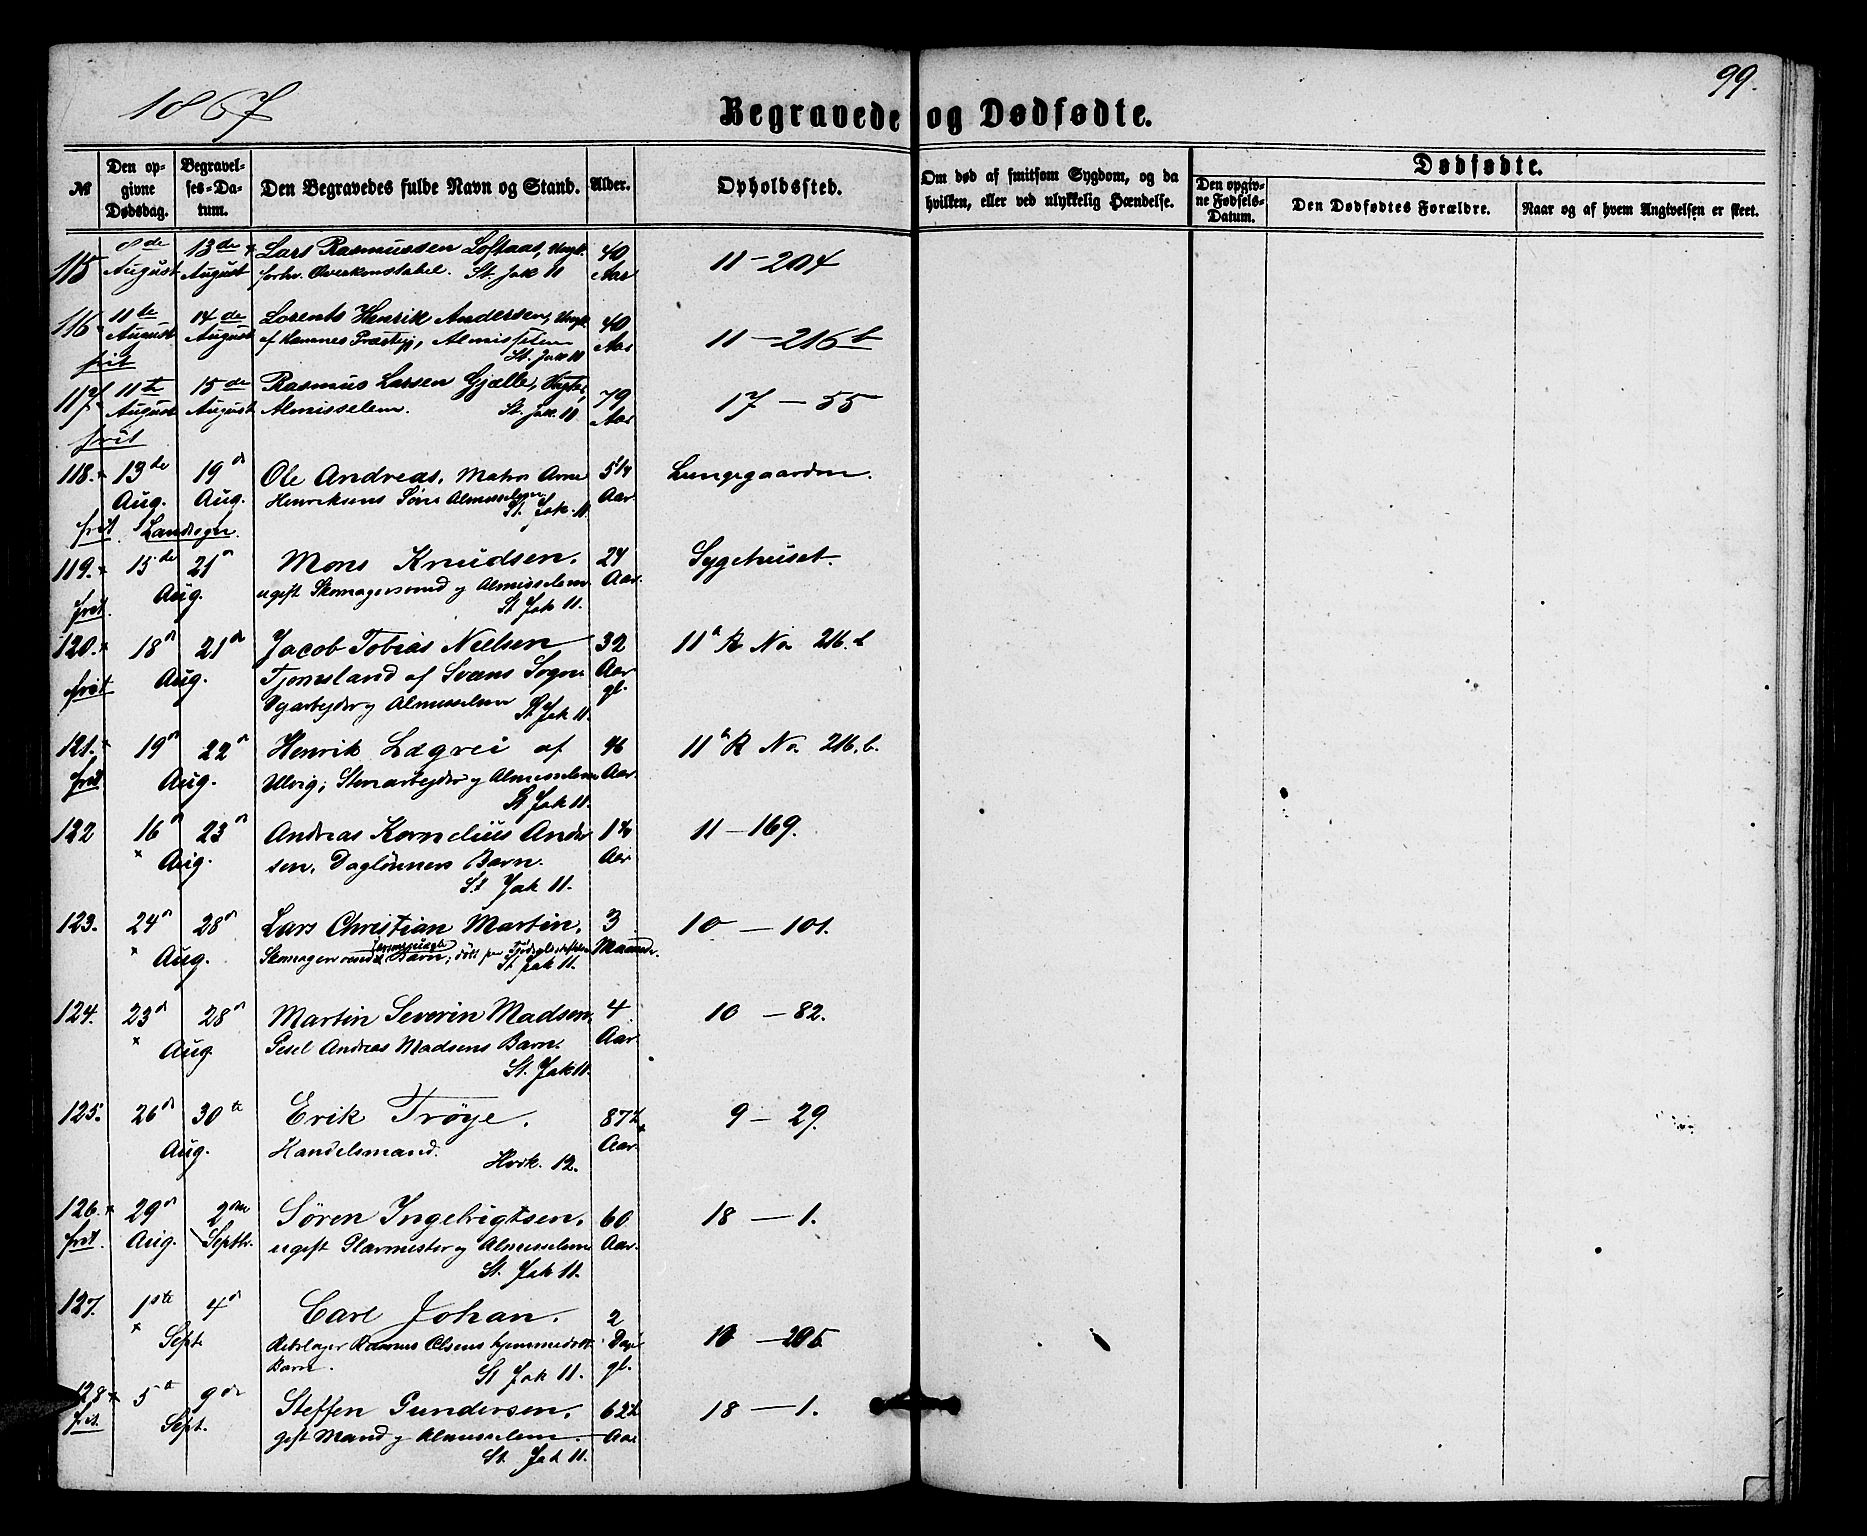 1867
99.
Begravede og Dødfødte.
№
Den opgivne Dødsdag.
Begravelses-Datum.
Den Begravedes fulde Navn og Stand.
Alder.
Opholdssted.
Om død af smitsom Sygdom, og da hvilken, eller ved ulykkelig Hændelse.
Dødfødte.
Den opgivne Fødsels-Datum.
Den Dødfødtes Forældre.
Naar og af hvem Angivelsen er skeet.
115 8de 13de Lars Rasmussen Loftaas, 40 11-204
August August forhv. Overkonstabel. St. Jak 11 Aar
116 11te 14de Lorents Henrik Andersen, 40 11-216b
August August af Hemnes Præstegj, Almisselem Aar
frit St. Jak 11
117 11te 15de Rasmus Larsen Gjælle, 79 17-55
August August Almisselem. St. Jak 11. Aar
frit
118. 13de 19de Ole Andreas, Matros Arne 5 1/4 Lungegaarden.
Aug. Aug. Henriksens Søn Almisselem Aar
St. Jak. 11
frit Landsogn.
119. 15de 21de Mons Knudsen. 24 Sygehuset.
Aug. ugift Skomagersvend og Almisselem Aar.
frit. St Jak 11.
120. 18de 21de Jacob Tobias Nielsen 32 11te R No. 216.b
Aug. Tjomsland af Svens Sogn Aar
frit Almisselem gl.
St Jak 11.
121. 19de 22de Henrik Lægrei af 46 11te R No. 216.b.
frit Aug. Ulvig, Stenarbejder og Almisselem Aar.
St Jak 11.
122 16de 23de Andreas Kornelius Ander 11-169.
Aug. sen, Daglønners Barn. Aar
St Jak 11.
123. 24de 28de Lars Christian Martin, 3 10-101.
Aug. Skomagersvend Barn, Maander.
St Jak 11.
124. 23de 28de Martin Severin Madsen, 4 10-82.
Aug. Gesel Andreas Madsens Barn. Aar
St. Jak 11.
125. 26de 30te Erik Trøye. 87 1/2 9-29.
Aug. Handelsmand. Aar.
Hvk. 12.
126. 29de 2den Søren Ingebrigtsen, 60 18-1.
frit. Aug. Septbr. ugift Murmester og Almisselem Aar.
St. Jak 11.
127. 1ste 4de Carl Johan. 2
Sept. Rebslager Rasmus Olsens hjemmedøbt Dage 10-205.
Barn. St Jak 11. gl.
128 5te 9de Steffen Gundersen, 62 1/2 18-1.
frit Sept. gift Mand og Almisselem. Aar
St. Jak 11.